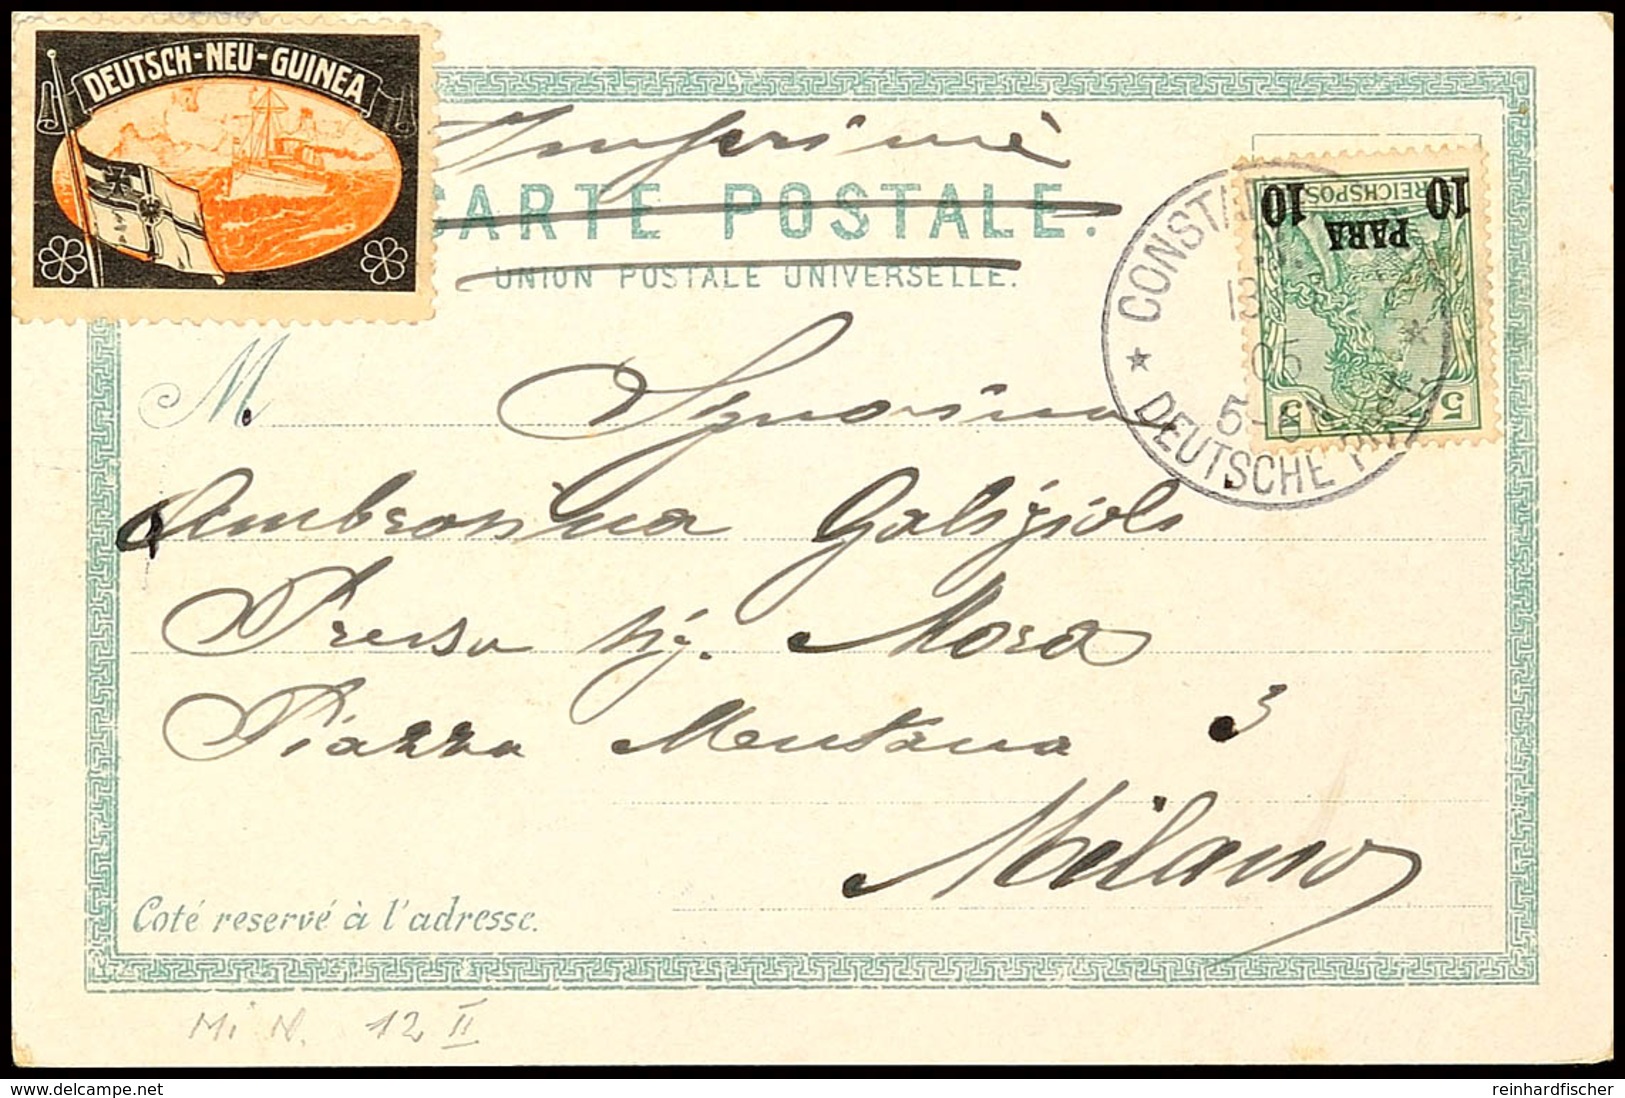 DEUTSCH-NEU-GUINEA
Imprimé
CARTE POSTALE.
UNION POSTALE UNIVERSELLE.
10 PARA 10
REICHSPOST
5 5
CONSTANTINOPEL
13
05
5-6N
DEUTSCHE POST
M. Signorina
Ambrosina Galigioli
Presso Sig. Mora
Piazza Mentana 3
Milano
Coté reservé à l'adresse.
Mi N. 12 II
delcampe.net
reinhardfischer